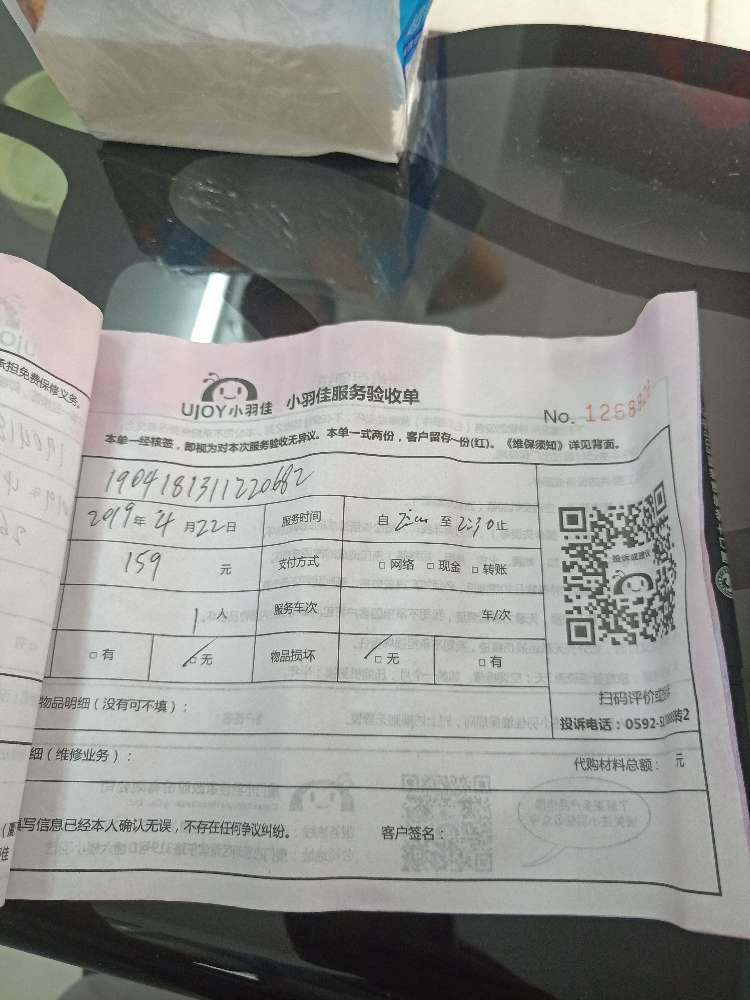 承担免费保修义务。
UJOY小羽佳 小羽佳服务验收单
No. 1268
本单一经核签，即视为对本次服务验收无异议。本单一式两份，客户留存一份(红)。《维保须知》详见背面。
1904181311220682
2019年4月22日 服务时间 自 至 2:30止
159 元 支付方式 □网络 □现金 □转账
1人 服务车次 车/次
□有 □无 物品损坏 □无 □有
投诉或建议
扫码评价或
投诉电话：0592-5 转2
物品明细（没有可不填）：
细（维修业务）： 代购材料总额： 元
填写信息已经本人确认无误，不存在任何争议纠纷。 客户签名：